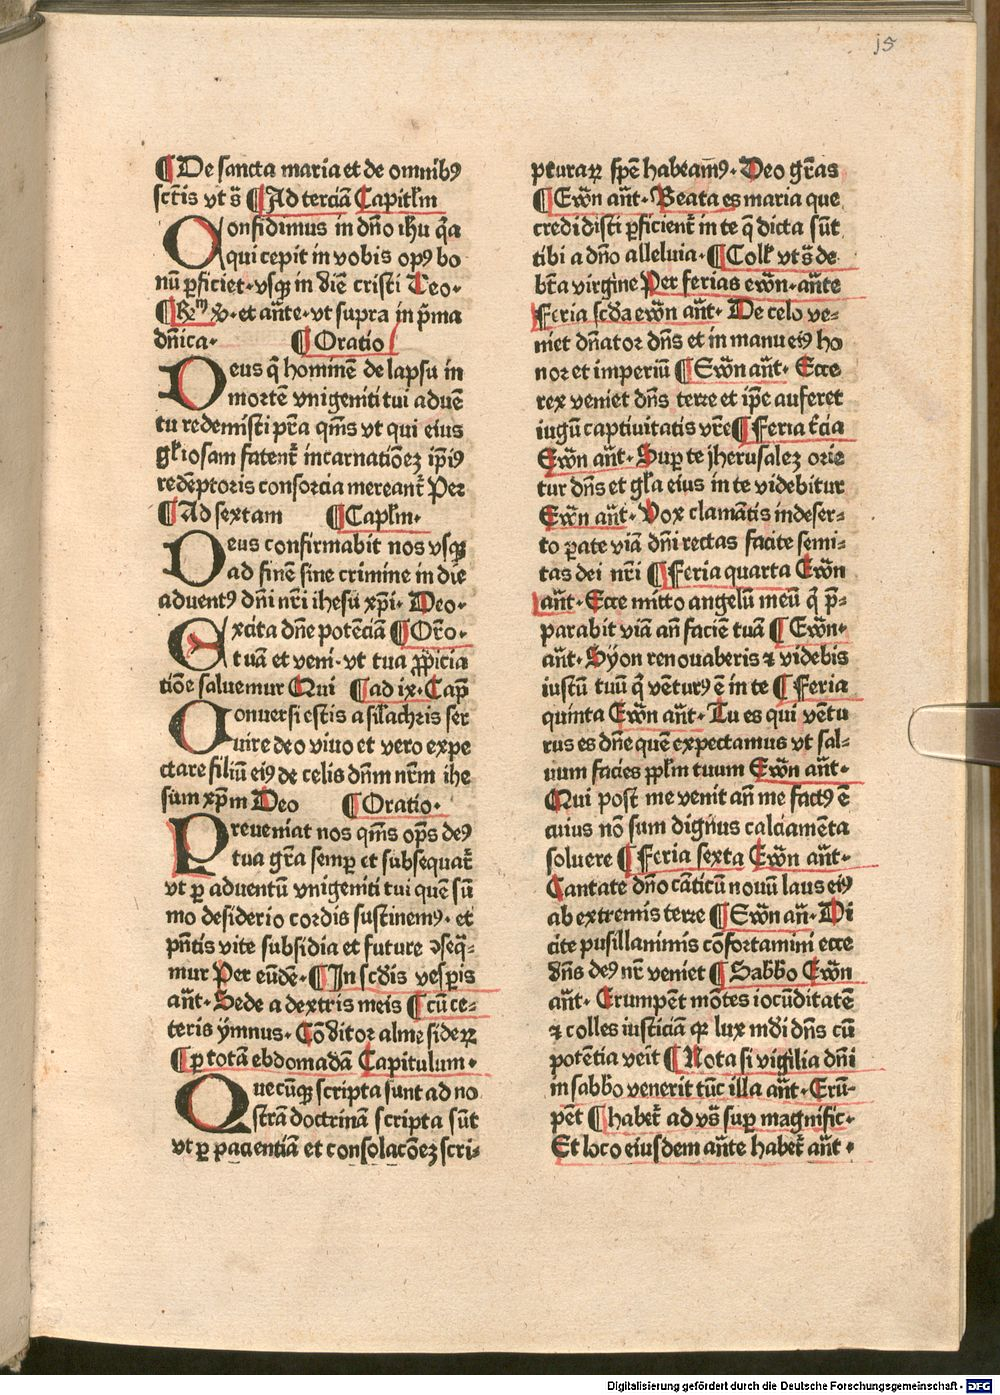 15
¶ De sancta maria et de omnibꝯ
sctīs vt s̄ ¶ Ad terciā Capitl̄m
Confidimus in dn̄o ihu q̄a
qui cepit in vobis opꝯ bo
nū ꝑficiet · vsqꝫ in diē cristi Deo ·
¶ Rm̄ xp̄o · et an̄te · vt supra in p̄ma
dn̄ica · ¶ Oratio
Deus q̄ hominē delapsu in
mortē vnigeniti tui aduē
tu redemisti p̄ra qm̄s vt qui eius
gl̄iosam faten̄t incarnatiōeꝫ ip̄iꝯ
redēptoris consorcia merean̄t Per
¶ Ad sextam ¶ Capl̄m ·
Deus confirmabit nos vsqꝫ
ad finē sine crimine in die
aduentꝯ dn̄i nr̄i ihesu xp̄i · Deo ·
Excita dn̄e potēciā ¶ Or̄o ·
tuā et veni · vt tua ꝓpicia
tiōe saluemur Qui ¶ ad ix · Cap̄
Conuersi estis a sil̄achris ser
uire deo viuo et vero expe
ctare filiū eiꝯ de celis dn̄m nr̄m ihe
sum xp̄m Deo ¶ Oratio ·
Preueniat nos qm̄s op̄s deꝯ
tua gr̄a semꝑ et subsequat̄
vt ꝑ aduentū vnigeniti tui quē sū
mo desiderio cordis sustinemꝯ · et
pn̄tis vite subsidia et future ꝯseq̄-
mur Per eūdē · ¶ In scdīs vesꝑis
an̄t · Sede a dextris meis ¶ cū ce-
teris ymnus · Cōditor alme sideꝝ
¶ ꝑ totā ebdomadā Capitulum ·
Quecūqꝫ scripta sunt ad no
strā doctrinā scripta sūt
vt ꝑ pacientiā et consolacōeꝫ scri-
pturaꝝ spē habeam̄ꝯ · Deo gr̄as
¶ Ewn̄ an̄t · Beata es maria que
credidisti ꝑficient̄ in te q̄ dicta sūt
tibi a dn̄o alleluia · ¶ Coll' vt s̄ de
bt̄a virgine Per ferias ewn̄ · an̄te
Feria scd̄a ewn̄ an̄t · De celo ve-
niet dn̄ator dn̄s et in manu eiꝯ ho
nor et imperiū ¶ Ewn̄ an̄t · Ecce
rex veniet dn̄s terre et ip̄e auferet
iugū captiuitatis vr̄e ¶ Feria t̄cia
Ewn̄ an̄t · Suꝑ te jherusaleꝫ orie
tur dn̄s et gl̄a eius in te videbitur
Ewn̄ an̄t · Vox clamātis in deser-
to ꝑate viā dn̄i rectas facite semi-
tas dei nr̄i ¶ Feria quarta Ewn̄
an̄t · Ecce mitto angelū meū q̄ p̄-
parabit viā an̄ faciē tuā ¶ Ewn̄ ·
an̄t · Syon renouaberis ⁊ videbis
iustū tuū q̄ vēturꝯ ē in te ¶ Feria
quinta Ewn̄ an̄t · Tu es qui vētu
rus es dn̄e quē expectamus vt sal-
uum facies ppl̄m tuum Ewn̄ an̄t ·
Qui post me venit an̄ me factꝯ ē
cuius nō sum dignus calciamēta
soluere ¶ Feria sexta Ewn̄ an̄t ·
Cantate dn̄o cāticū nouū laus eiꝯ
ab extremis terre ¶ Ewn̄ an̄ · Di
cite pusillanimis cōfortamini ecce
dn̄s deꝯ nr̄ veniet ¶ Sabb̄o Ewn̄
an̄t · Erumpēt mōtes iocūditatē
⁊ colles iusticiā qꝛ lux mūdi dn̄s cū
potētia veit ¶ Nota si vigilia dn̄i
in sabb̄o venerit tūc illa an̄t · Erū-
pēt ¶ habet̄ ad vs̄ suꝑ magnific ·
Et loco eiusdem an̄te habet̄ an̄t ·
Digitalisierung gefördert durch die Deutsche Forschungsgemeinschaft - DFG